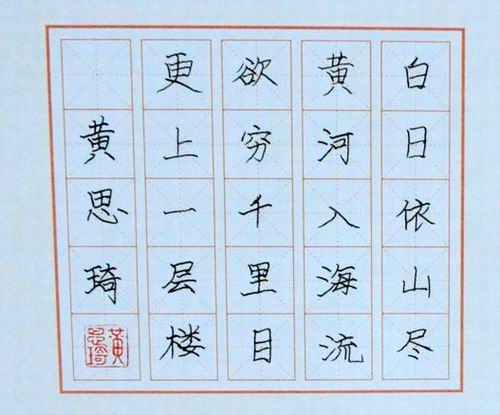 白日依山尽
黄河入海流
欲穷千里目
更上一层楼
黄思琦
黃思琦